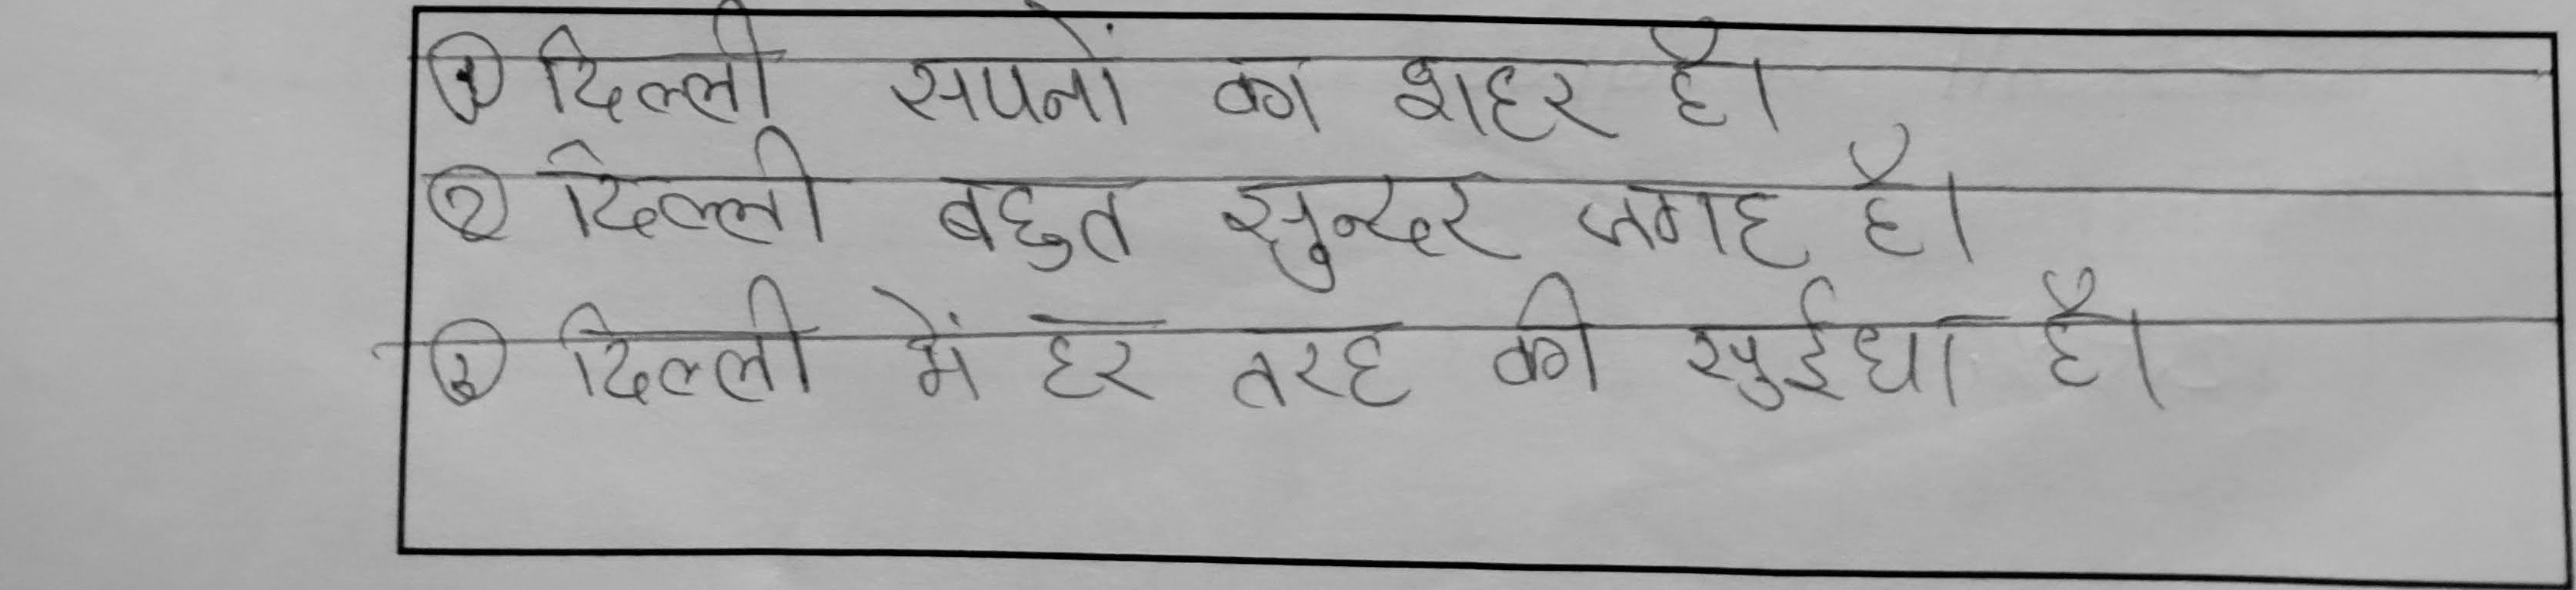 ① दिल्ली सपनों का शहर है।
② दिल्ली बहुत सुन्दर जगह है।
③ दिल्ली में हर तरह की सुईधा है।